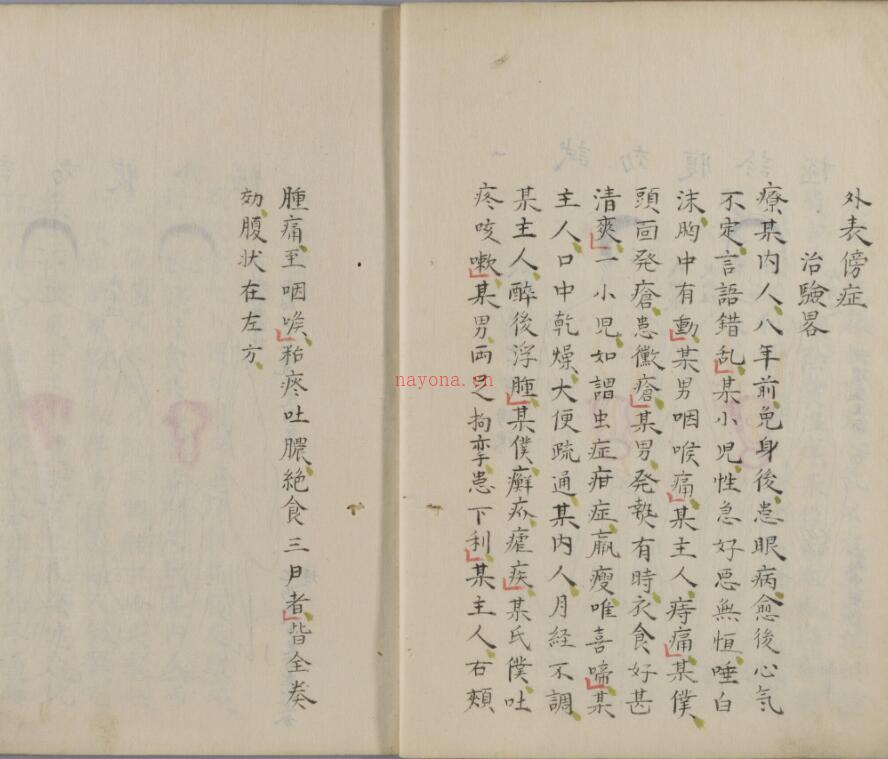 外表傍症
治驗畧
療某内人、八年前免身後、患眼病、愈後心气
不定、言語錯乱、某小児、性急好悪無恒、唾白
沫、胸中有動、某男咽喉痛、某主人、痔痛、某僕、
頭面発瘡、患黴瘡、某男、発熱有時、衣食好甚
清爽、一小児、如謂虫症疳症、羸瘦唯喜啼、某
主人、口中乾燥、大便疏通、某内人、月経不調、
某主人、醉後浮腫、某僕、癬疥瘧疾、某氏僕、吐
疼咳嗽、某男、両足拘挛、患下利、某主人、右頰
腫痛、至咽喉、粘疼吐膿、絶食三日者、皆全奏
効、腹状在左方、
nayona.cn